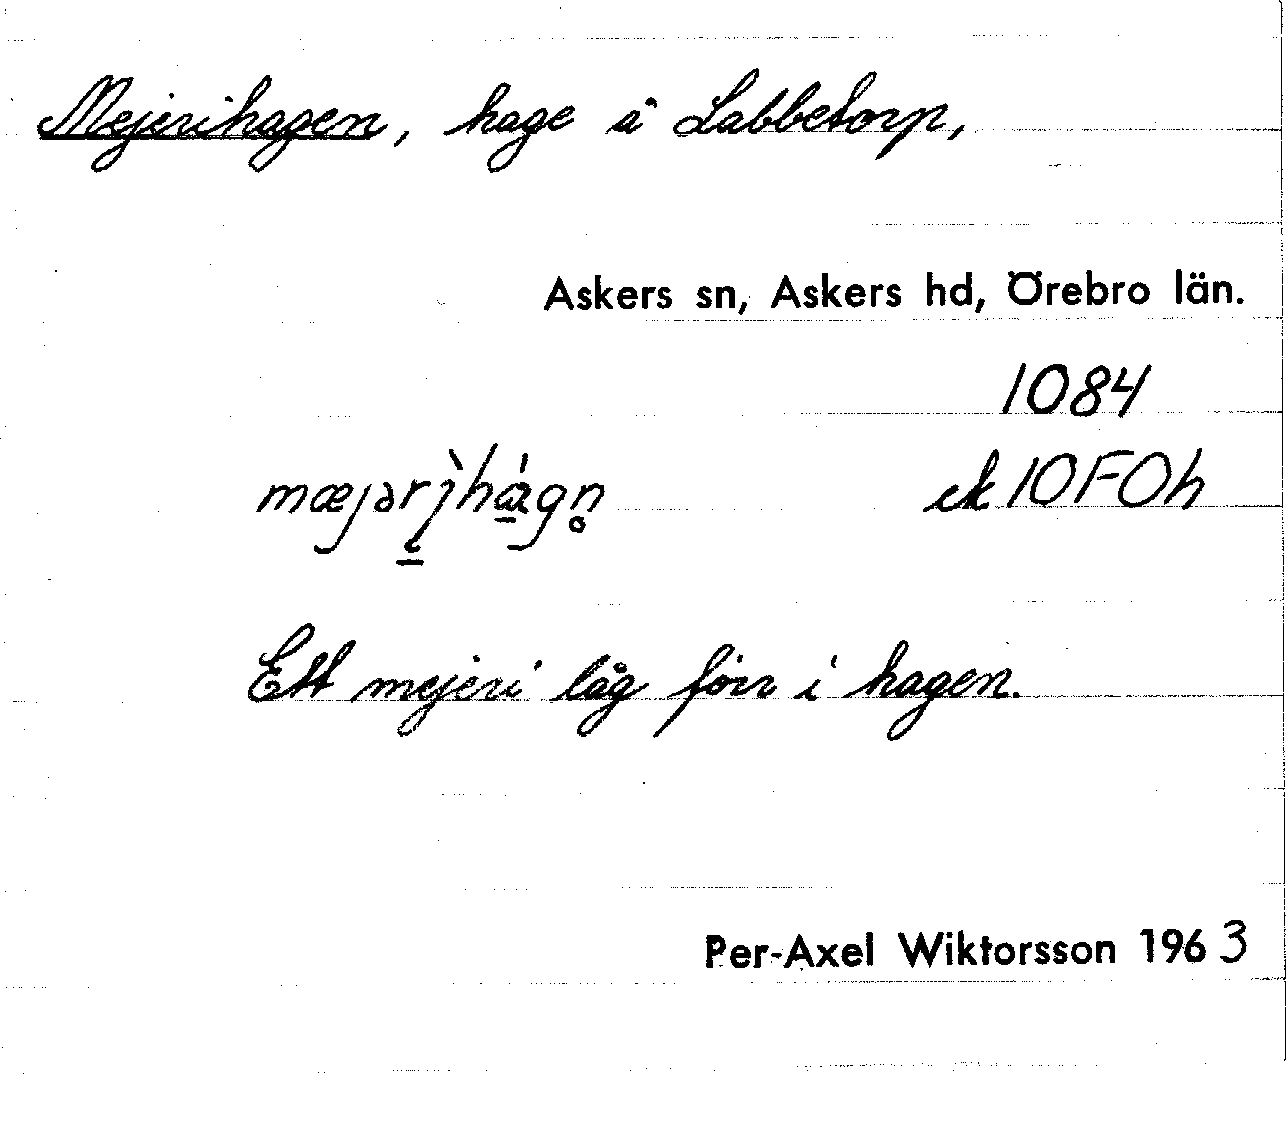 Mejerihagen, hage å Labbetorp,
Askers sn, Askers hd, Örebro län.
1084
ek 10F0h
Ett mejeri låg förr i hagen.
Per-Axel Wiktorsson 1963